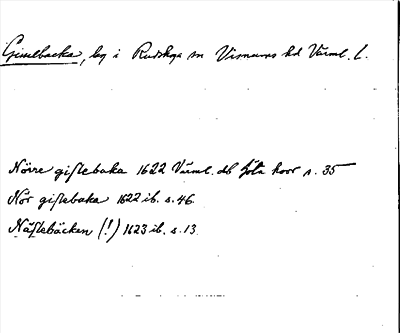 Gisselbacka, beg i Rudskoga sn Visnums hd Värml. l.
Nörre gislebaka 1622 Värml. db Göta hovr s. 35
Nör gislebaka 1622 ib. s. 46
Näslebäcken (!) 1623 ib. s. 13.